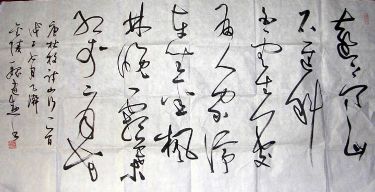 遠上寒山
石径斜
白云生处
有人家停
车坐爱楓
林晚霜葉
红于二月花
唐杜牧詩山行一首